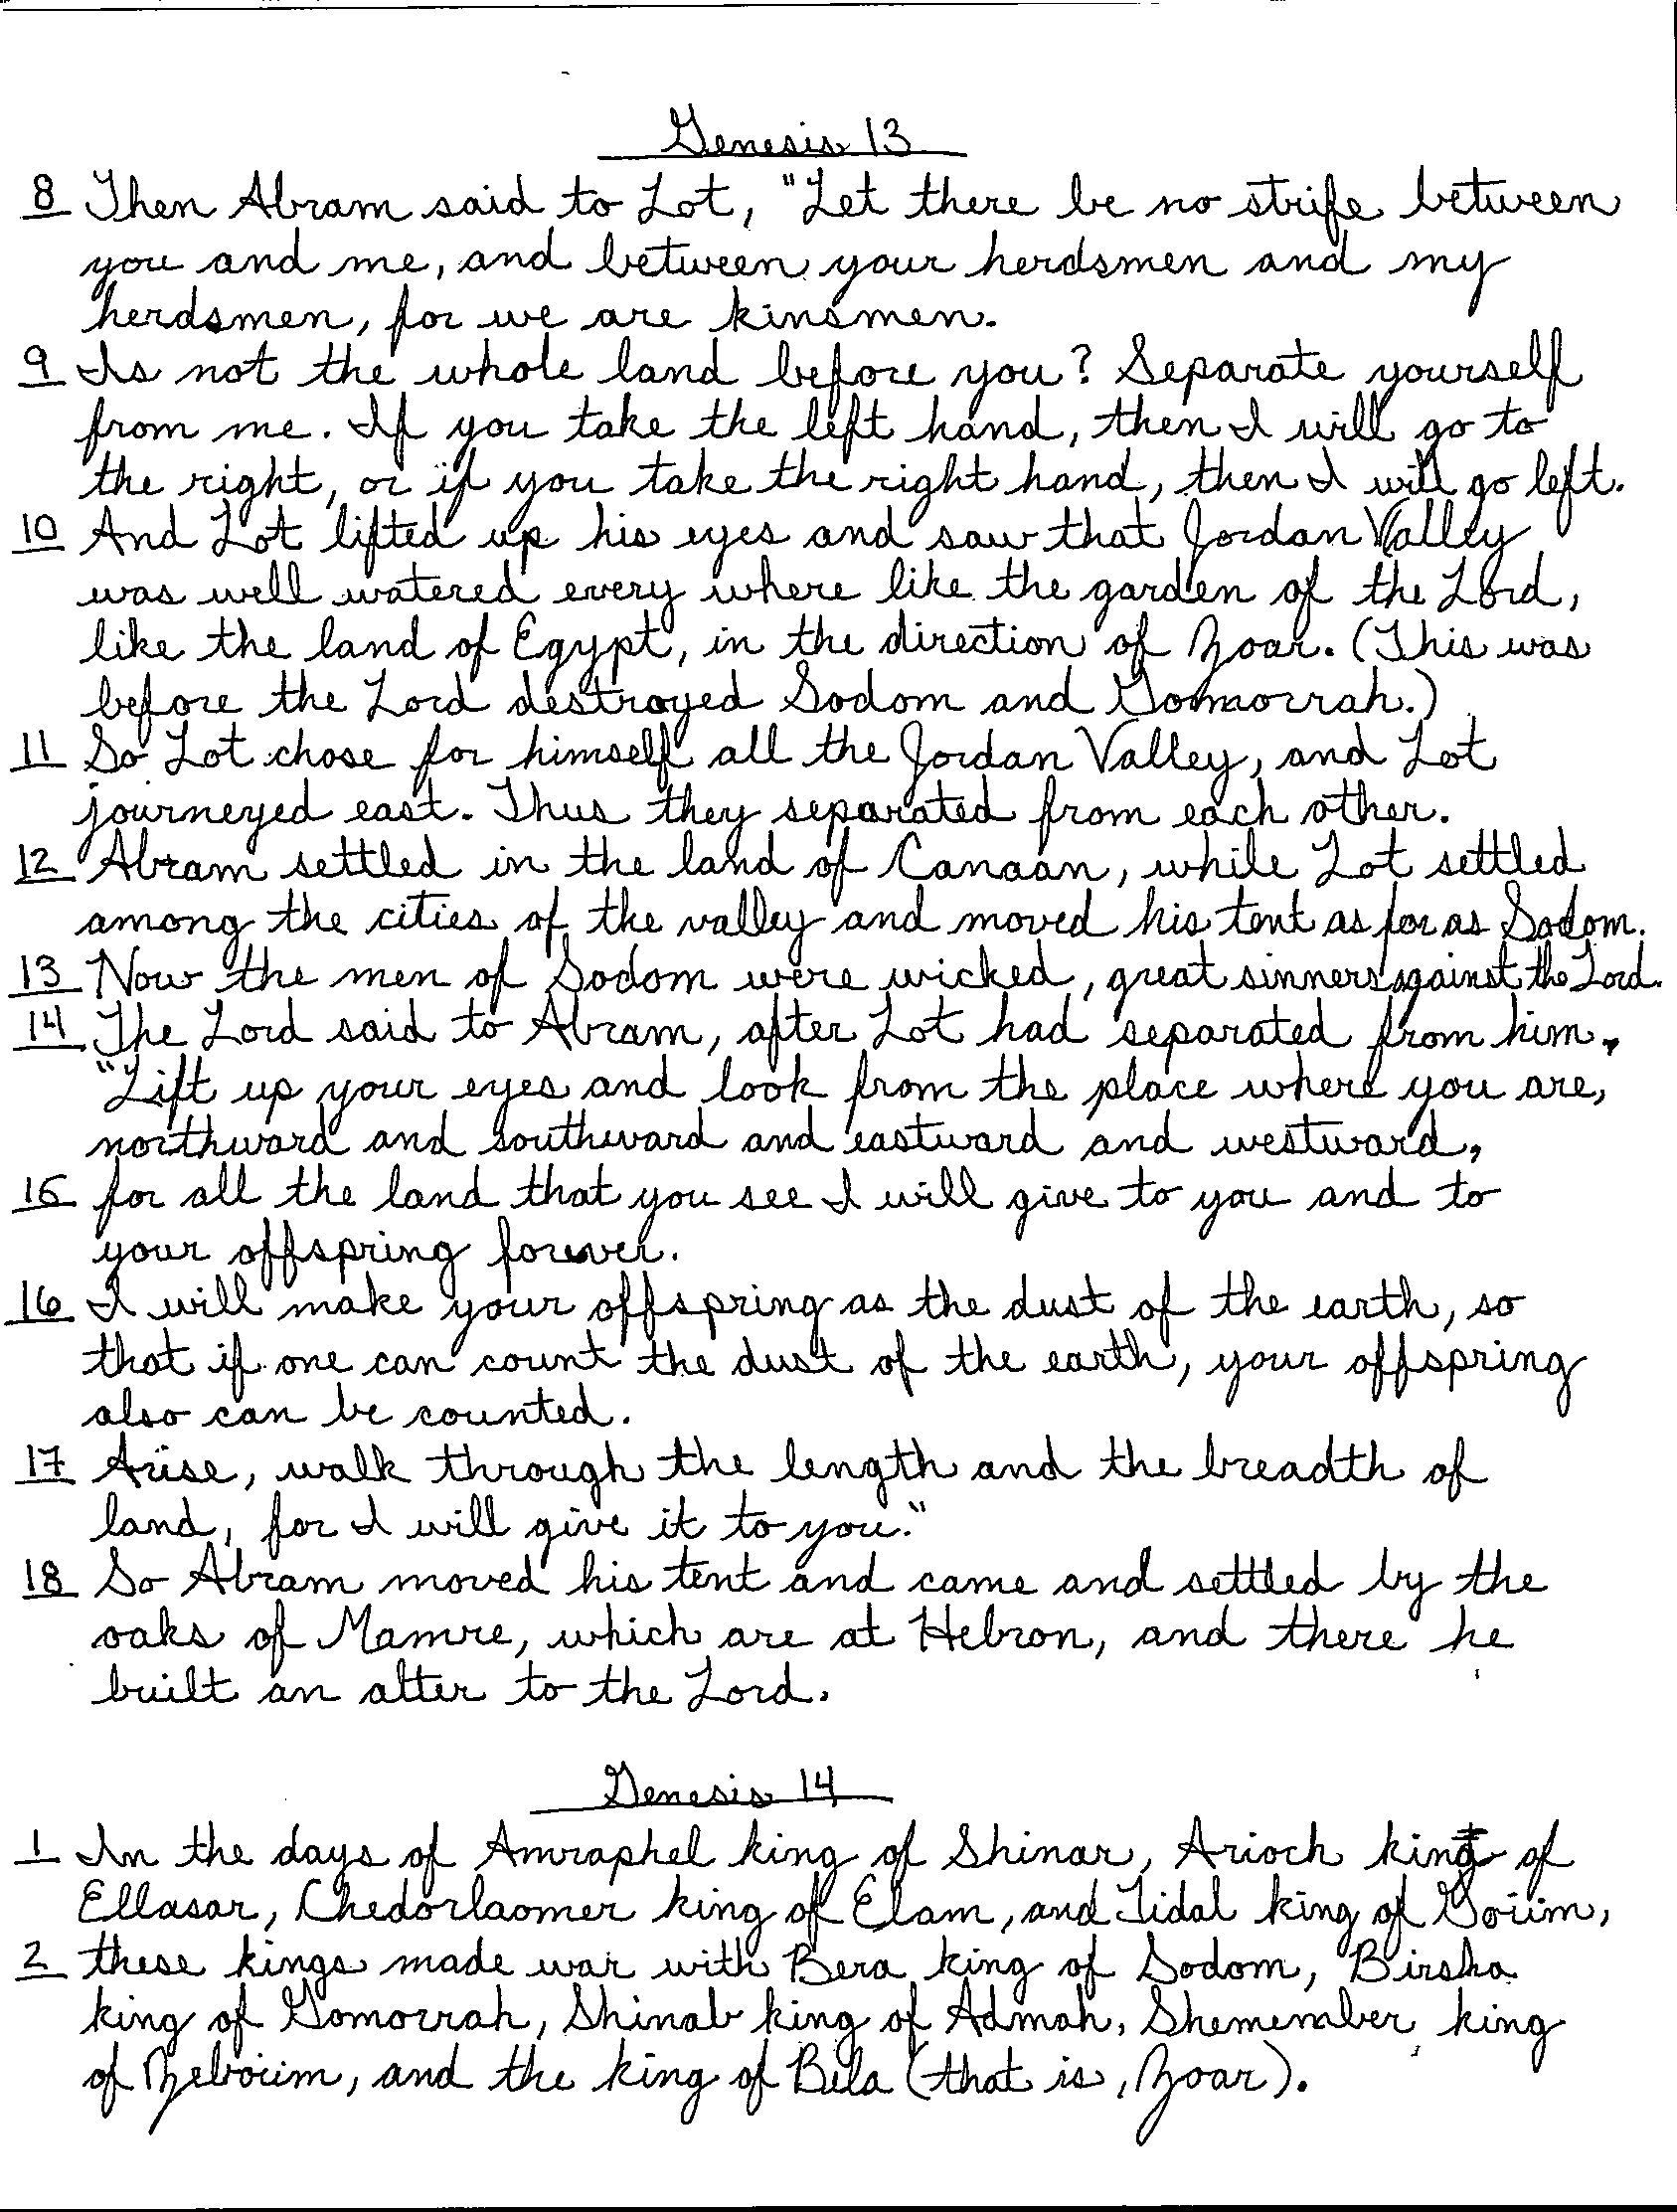 Genesis 13
8 Then Abram said to Lot, "Let there be no strife between
you and me, and between your herdsmen and my
herdsmen, for we are kinsmen.
9 Is not the whole land before you? Separate yourself
from me. If you take the left hand, then I will go to
the right, or if you take the right hand, then I will go left.
10 And Lot lifted up his eyes and saw that Jordan Valley
was well watered every where like the garden of the Lord,
like the land of Egypt, in the direction of Zoar. (This was
before the Lord destroyed Sodom and Gomorrah.)
11 So Lot chose for himself all the Jordan Valley, and Lot
journeyed east. Thus they separated from each other.
12 Abram settled in the land of Canaan, while Lot settled
among the cities of the valley and moved his tent as far as Sodom.
13 Now the men of Sodom were wicked, great sinners against the Lord.
14 The Lord said to Abram, after Lot had separated from him,
"Lift up your eyes and look from the place where you are,
northward and southward and eastward and westward,
15 for all the land that you see I will give to you and to
your offspring forever.
16 I will make your offspring as the dust of the earth, so
that if one can count the dust of the earth, your offspring
also can be counted.
17 Arise, walk through the length and the breadth of
land, for I will give it to you."
18 So Abram moved his tent and came and settled by the
oaks of Mamre, which are at Hebron, and there he
built an alter to the Lord.
Genesis 14
1 In the days of Amraphel king of Shinar, Arioch king of
Ellasar, Chedorlaomer king of Elam, and Tidal king of Goiim,
2 these kings made war with Bera king of Sodom, Birsha
king of Gomorrah, Shinab king of Admah, Shemember king
of Zeboiim, and the king of Bela (that is, Zoar).